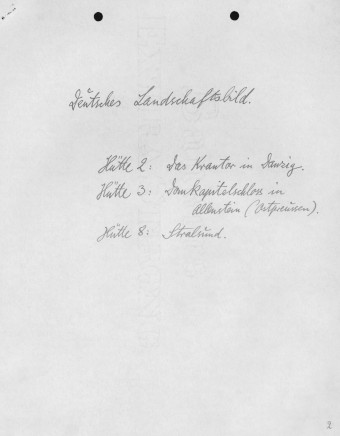 Deutsches Landschaftsbild.
Hütte 2: Das Krantor in Danzig.
Hütte 3: Domkapitelschloss in
Allenstein (Ostpreussen).
Hütte 8: Stralsund.
2